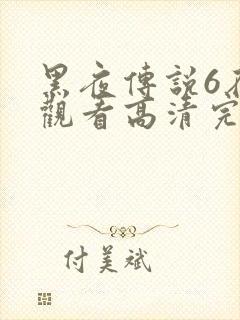 黑夜傳説6在
觀看高清完
付美斌